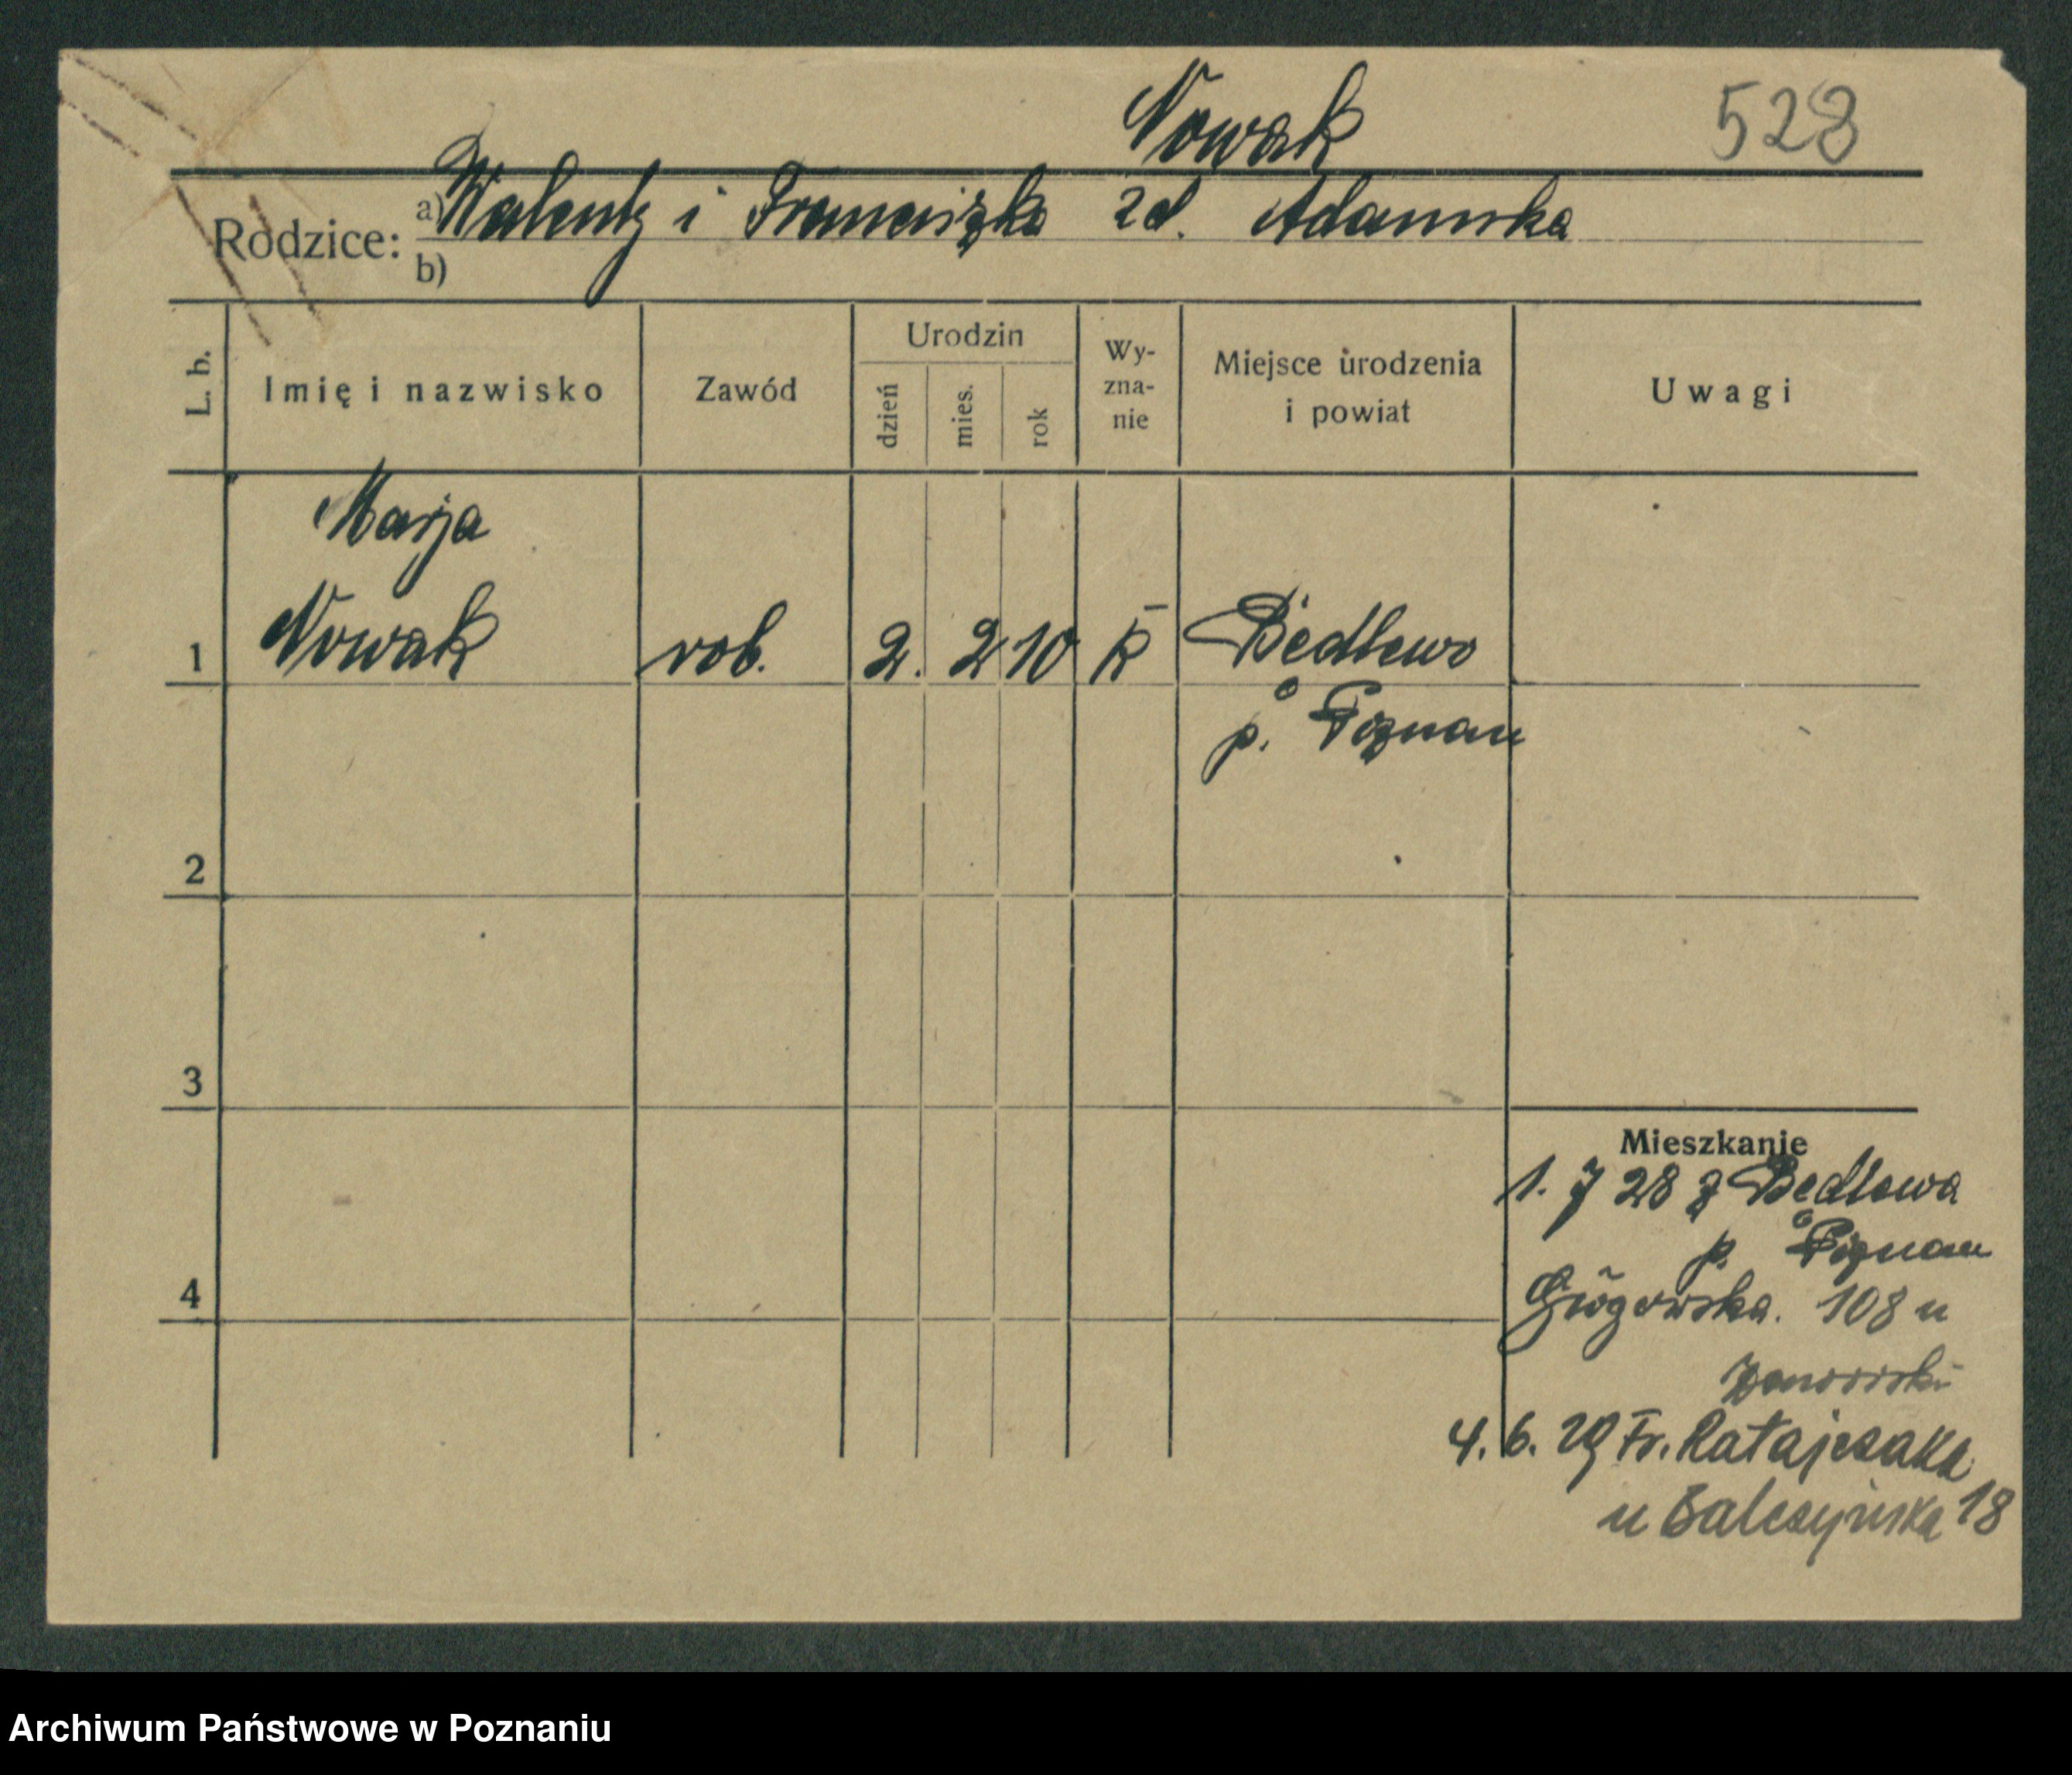 Nowak
528
Rodzice: a) Walenty i Franciszka zd. Adamska
b)
L. b.
Imię i nazwisko
Zawód
Urodzin
dzień
mies.
rok
Wy-
zna-
nie
Miejsce urodzenia
i powiat
Uwagi
Marja
1 Nowak rob. 2. 2 10 k Będlewo
p. Poznan
2
3
Mieszkanie
1. 7 28 z Będlewa
p. Poznan
4
Głogowska. 108 u
4. 6. 29 Fr. Ratajczaka
u Balczyńska 18
Archiwum Państwowe w Poznaniu